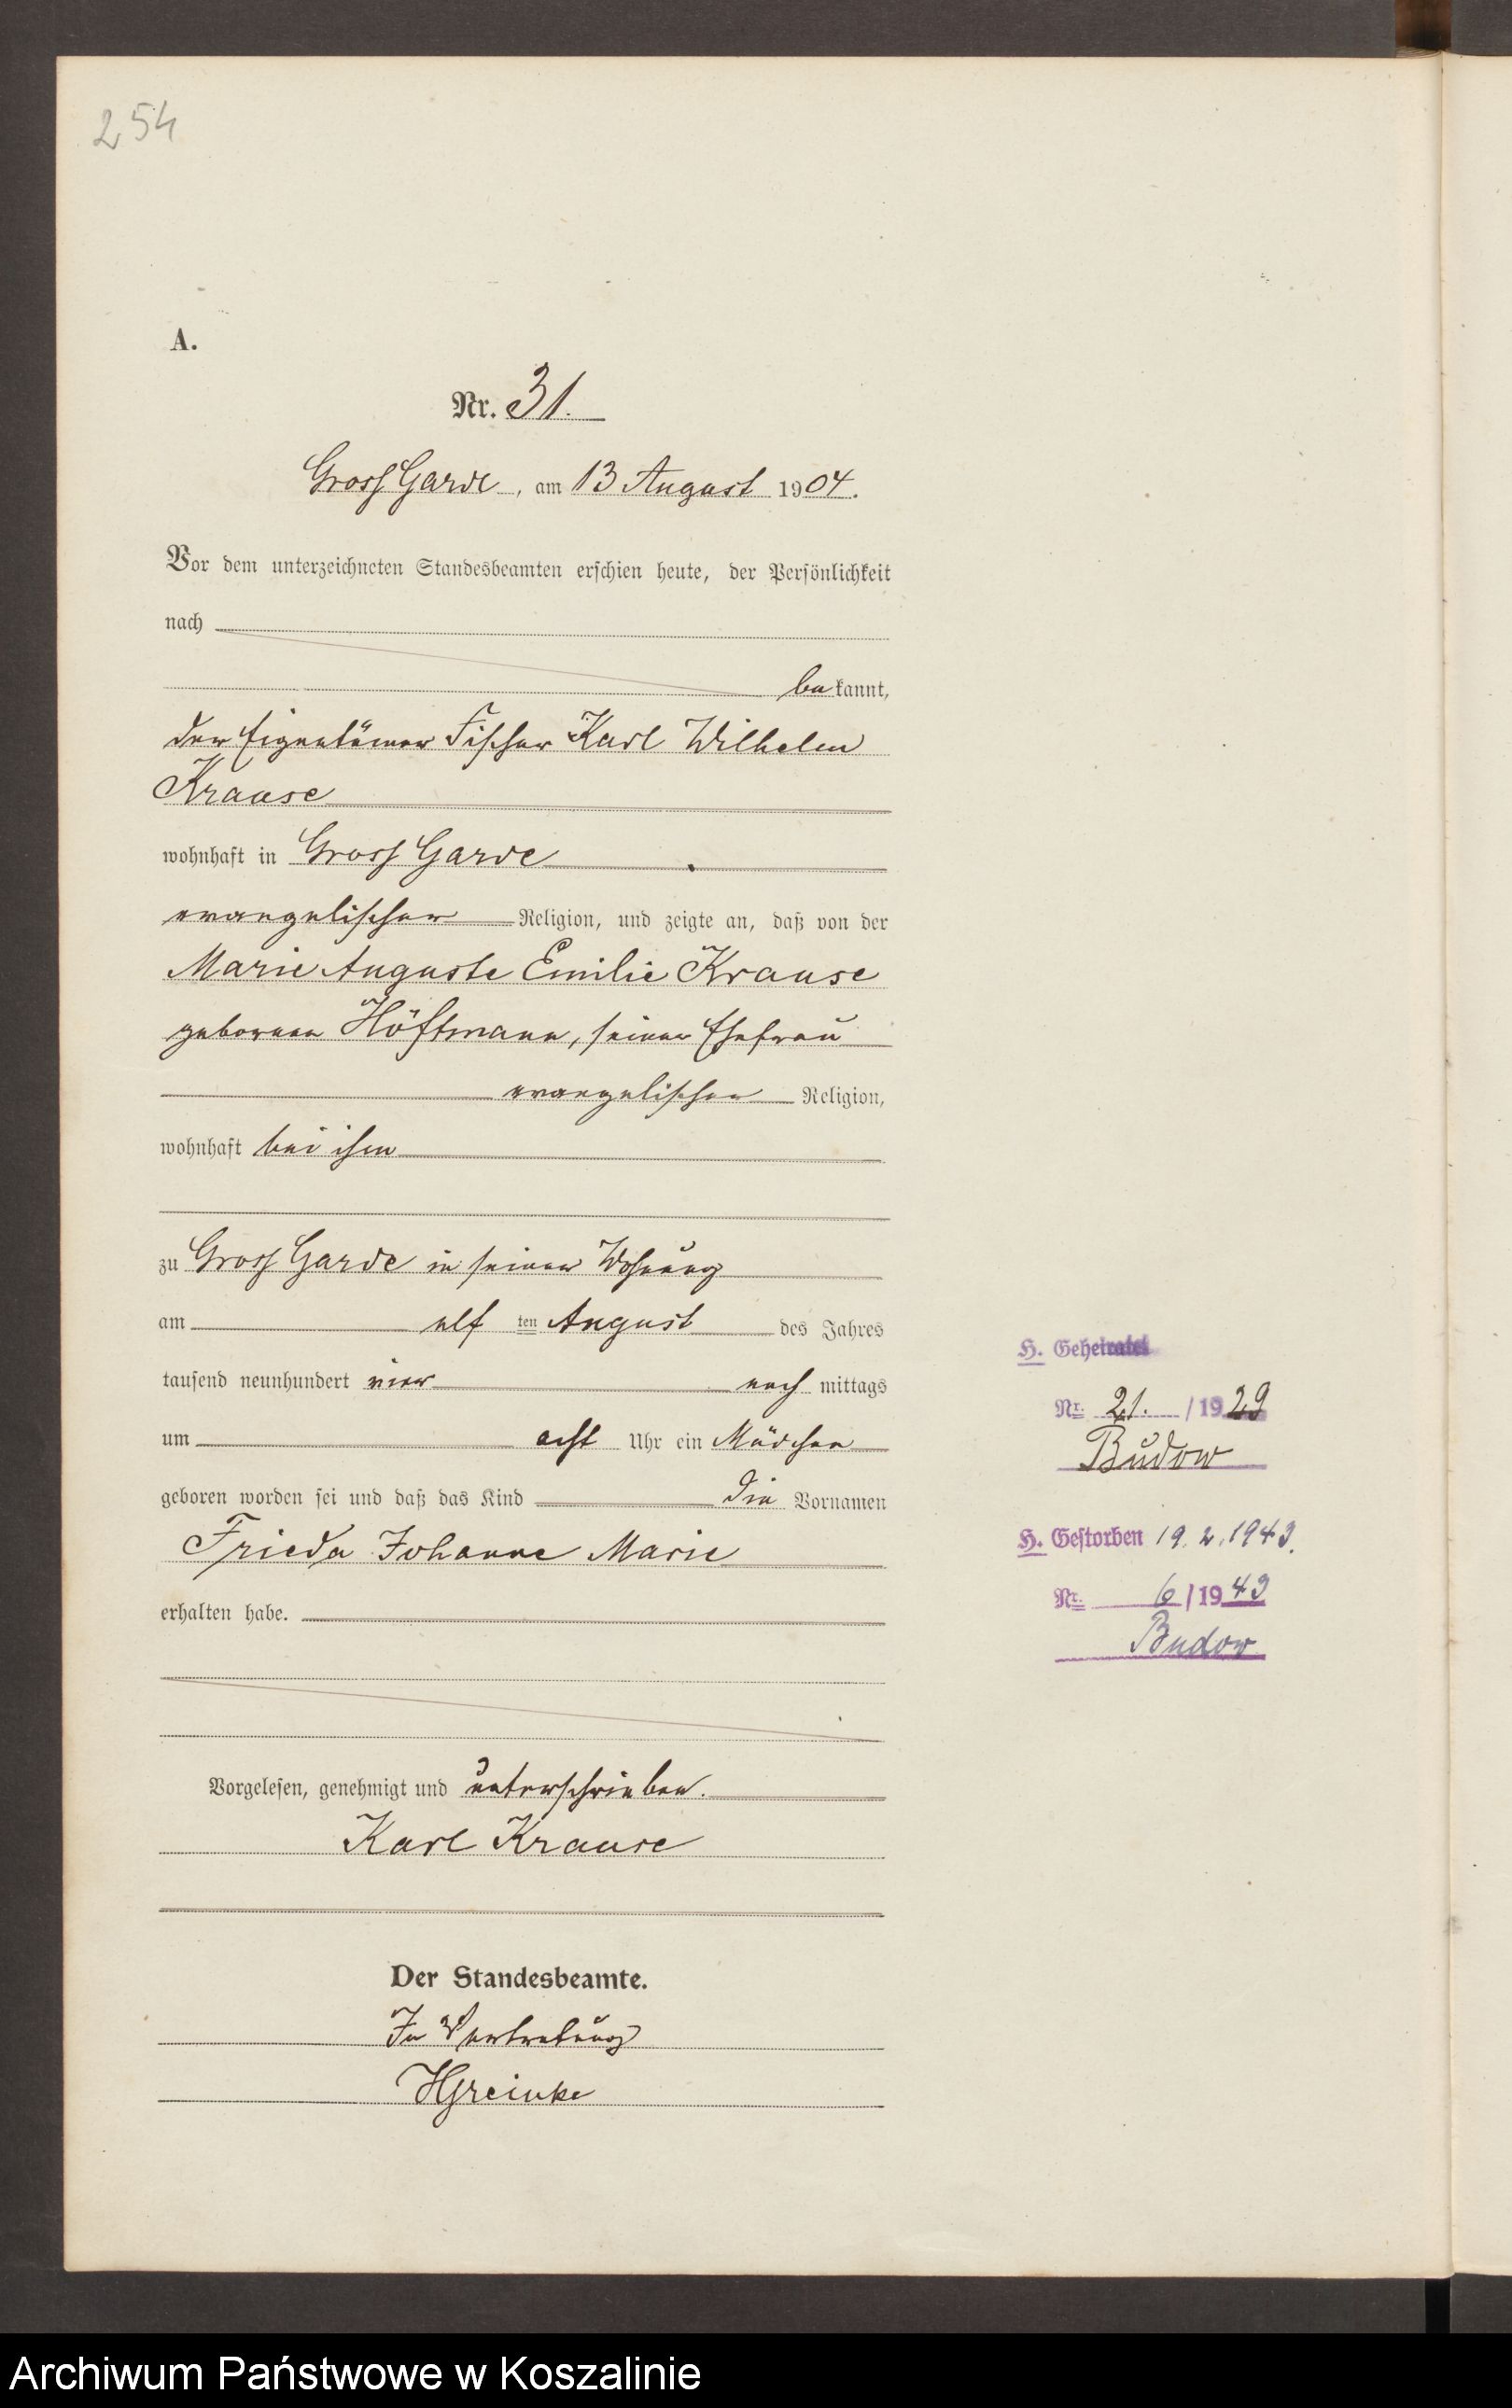 254
A.
Nr. 31.
Gross Garde, am 13 August 1904.
Vor dem unterzeichneten Standesbeamten erschien heute, der Persönlichkeit
nach
bekannt,
der Eigentümer Fischer Karl Wilhelm
Krause
wohnhaft in Gross Garde
evangelischer Religion, und zeigte an, daß von der
Marie Auguste Emilie Krause
geborenen Höftmann, seiner Ehefrau
evangelischer Religion,
wohnhaft bei ihm
zu Gross Garde in seiner Wohnung
am elf ten August des Jahres
tausend neunhundert vier nach mittags
um acht Uhr ein Mädchen
geboren worden sei und daß das Kind die Vornamen
Frieda Johanne Marie
erhalten habe.
Vorgelesen, genehmigt und unterschrieben.
Karl Krause
Der Standesbeamte.
In Vertretung
HGreinke
H. Geheiratet
Nr. 21. / 1929
Budow
H. Gestorben 19.2.1943.
Nr. 6/1943
Budow
Archiwum Państwowe w Koszalinie